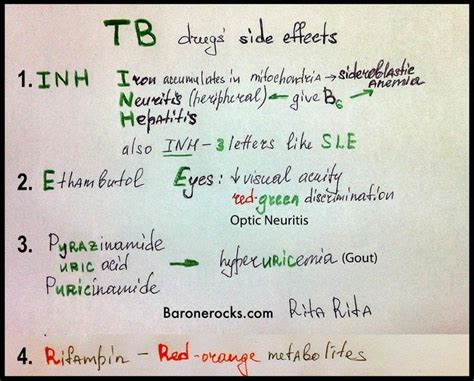 TB drugs' side effects
1. INH Iron accumulates in mitochondria → sideroblastic anemia
Neuritis (peripheral) ← give B6
Hepatitis
also INH – 3 letters like SLE
2. Ethambutol Eyes: ↓ visual acuity
red-green discrimination
Optic Neuritis
3. Pyrazinamide
uric acid → hyperuricemia (Gout)
Puricinamide
Baronerocks.com Rita Rita
4. Rifampin – Red-orange metabolites